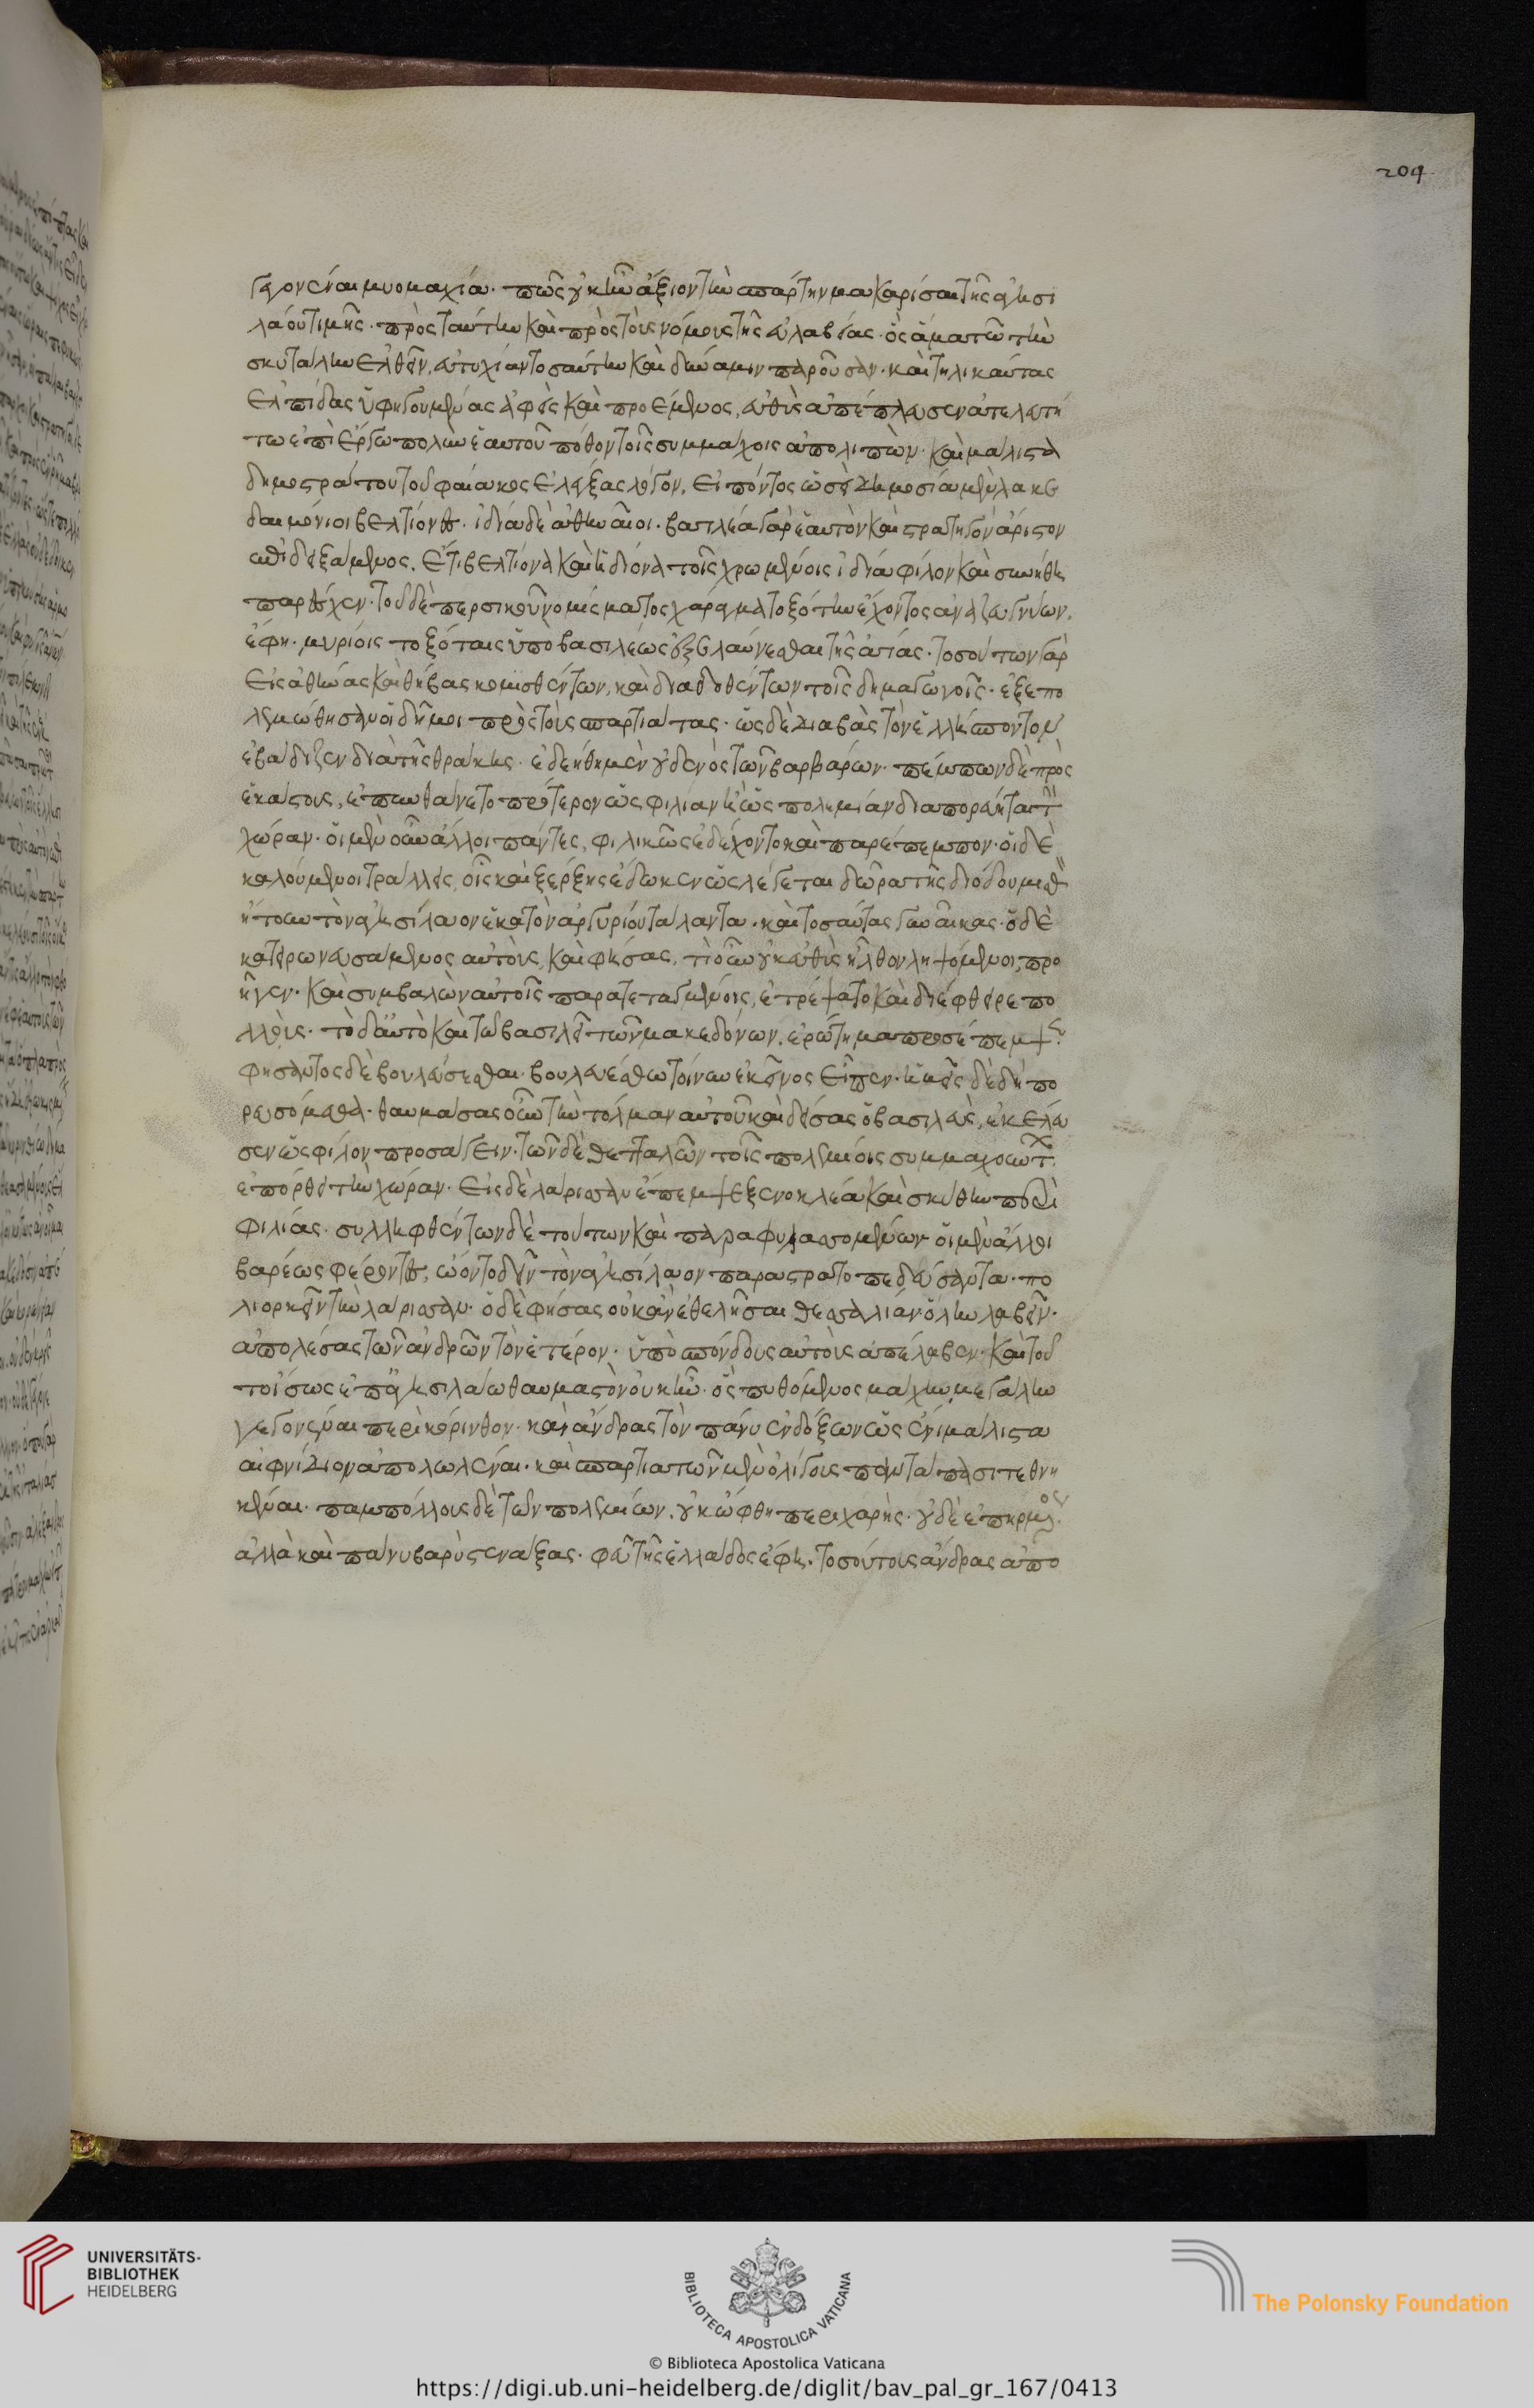 204
γεγονέναι μυομαχία· πῶς οὐκ ἦν ἄξιον τὴν σπάρτην μακαρίσαι τῆς ἀγησι
λάου τιμῆς· πρὸς ταύτην καὶ πρὸς τοὺς νόμους τῆς εὐλαβείας· ὃς ἅμα τῶ τὴν
σκυτάλην ἐλθεῖν, εὐτυχίαν τοσαύτην καὶ δύναμιν παροῦσαν· καὶ τηλικαύτας
ἐλπίδας ὑφηγουμένας ἀφεὶς καὶ προέμενος, εὐθὺς ἀπέπλευσεν ἀτελευτή
τω ἐπὶ ἔργω πολὺν ἑαυτοῦ πόθον τοῖς συμμάχοις ἀπολιπὼν· καὶ μάλιστα
δημοστράτου τοῦ φαίακος ἐλέγξας λόγον, εἰπόντος ὡς εἰ δημοσία μὲν λακε
δαιμόνιοι βελτίονες· ἰδία δὲ ἀθηναῖοι· βασιλέα γὰρ ἑαυτὸν καὶ στρατηγὸν ἄριστον
ἐπιδειξάμενος, ἔτι βελτίονα καὶ ἡδίονα τοῖς χρωμένοις ἰδία φίλον καὶ συνήθη
παρεῖχεν· τοῦ δὲ περσικοῦ νομίσματος χάραγμα τοξότην ἔχοντος ἀναζευγνύων,
ἔφη· μυρίοις τοξόταις ὑπὸ βασιλέως ἐξελαύνεσθαι τῆς ἀσίας· τοσούτων γὰρ
εἰς ἀθήνας καὶ θήβας κομισθέντων, καὶ διαδοθέντων τοῖς δημαγωγοῖς· ἐξεπο
λεμώθησαν οἱ δῆμοι πρὸς τοὺς σπαρτιάτας· ὡς δὲ διαβὰς τὸν ἑλλήσποντον
ἐβάδιζεν διὰ τῆς θράκης· ἐδεήθη μὲν οὐδενὸς τῶν βαρβάρων· πέμπων δὲ πρὸς
ἑκάστους, ἐπυνθάνετο πρότερον ὡς φιλίαν ἢ ὡς πολεμίαν διαπορεύηται τ
χώραν· οἱ μὲν οὖν ἄλλοι πάντες, φιλικῶς ἐδέχοντο καὶ παρέπεμπον· οἱ δὲ
καλούμενοι τραλλεῖς, οἷς καὶ ξέρξης ἔδωκεν ὡς λέγεται δῶρα τῆς διόδου μισθ
ἤτουν τὸν ἀγησίλαον ἑκατὸν ἀργυρίου τάλαντα· καὶ τοσαύτας γυναῖκας· ὁ δὲ
κατειρωνευσάμενος αὐτοὺς, καὶ φήσας, τί οὖν οὐκ εὐθὺς ἦλθον ληψόμενοι, προ
ῆγεν· καὶ συμβαλὼν αὐτοῖς παρατεταγμένοις, ἐτρέψατο καὶ διέφθειρε πο
λλοὺς· τὸ δ' αὐτὸ καὶ τῶ βασιλεῖ τῶν μακεδόνων, ἐρώτημα προσέπεμψε·
φήσαντος δὲ βουλεύσεσθαι· βουλευέσθω τοίνυν ἐκεῖνος εἶπεν· ἡμεῖς δὲ δὴ πο
ρευσόμεθα· θαυμάσας οὖν τὴν τόλμαν αὐτοῦ καὶ δείσας ὁ βασιλεὺς, ἐκέλευ
σεν ὡς φίλον προσάγειν· τῶν δὲ θετταλῶν τοῖς πολεμίοις συμμαχούντ
ἐπόρθει τὴν χώραν· εἰς δὲ λάρισσαν ἔπεμψε ξενοκλέα καὶ σκύθην περὶ
φιλίας· συλληφθέντων δὲ τούτων καὶ παραφυλασσομένων οἱ μὲν ἄλλοι
βαρέως φέροντες, ὤοντο δεῖν τὸν ἀγησίλαον παραστρατοπεδεύσαντα· πο
λιορκεῖν τὴν λάρισσαν· ὁ δὲ φήσας οὐκ ἂν ἐθελῆσαι θεσσαλίαν ὅλην λαβεῖν·
ἀπολέσας τῶν ἀνδρῶν τὸν ἕτερον· ὑποσπόνδους αὐτοὺς ἀπέλαβεν· καὶ τοῦ
το ἴσως ἐπ' ἀγησιλάω θαυμαστὸν οὐκ ἦν· ὃς πυθόμενος μάχην μεγάλην
γεγονέναι περὶ κόρινθον· καὶ ἄνδρας τῶν πάνυ ἐνδόξων ὡς ἔνι μάλιστα
αἰφνίδιον ἀπολωλέναι· καὶ σπαρτιατῶν μὲν ὀλίγους παντάπασι τεθνη
κέναι· παμπόλλους δὲ τῶν πολεμίων, οὐκ ὤφθη περιχαρὴς· οὐδὲ ἐπηρμένος·
ἀλλὰ καὶ πάνυ βαρὺ στενάξας· φεῦ τῆς ἑλλάδος ἔφη, τοσούτους ἄνδρας ἀπο
UNIVERSITÄTS-
BIBLIOTHEK
HEIDELBERG
BIBLIOTECA APOSTOLICA VATICANA
The Polonsky Foundation
© Biblioteca Apostolica Vaticana
https://digi.ub.uni-heidelberg.de/diglit/bav_pal_gr_167/0413